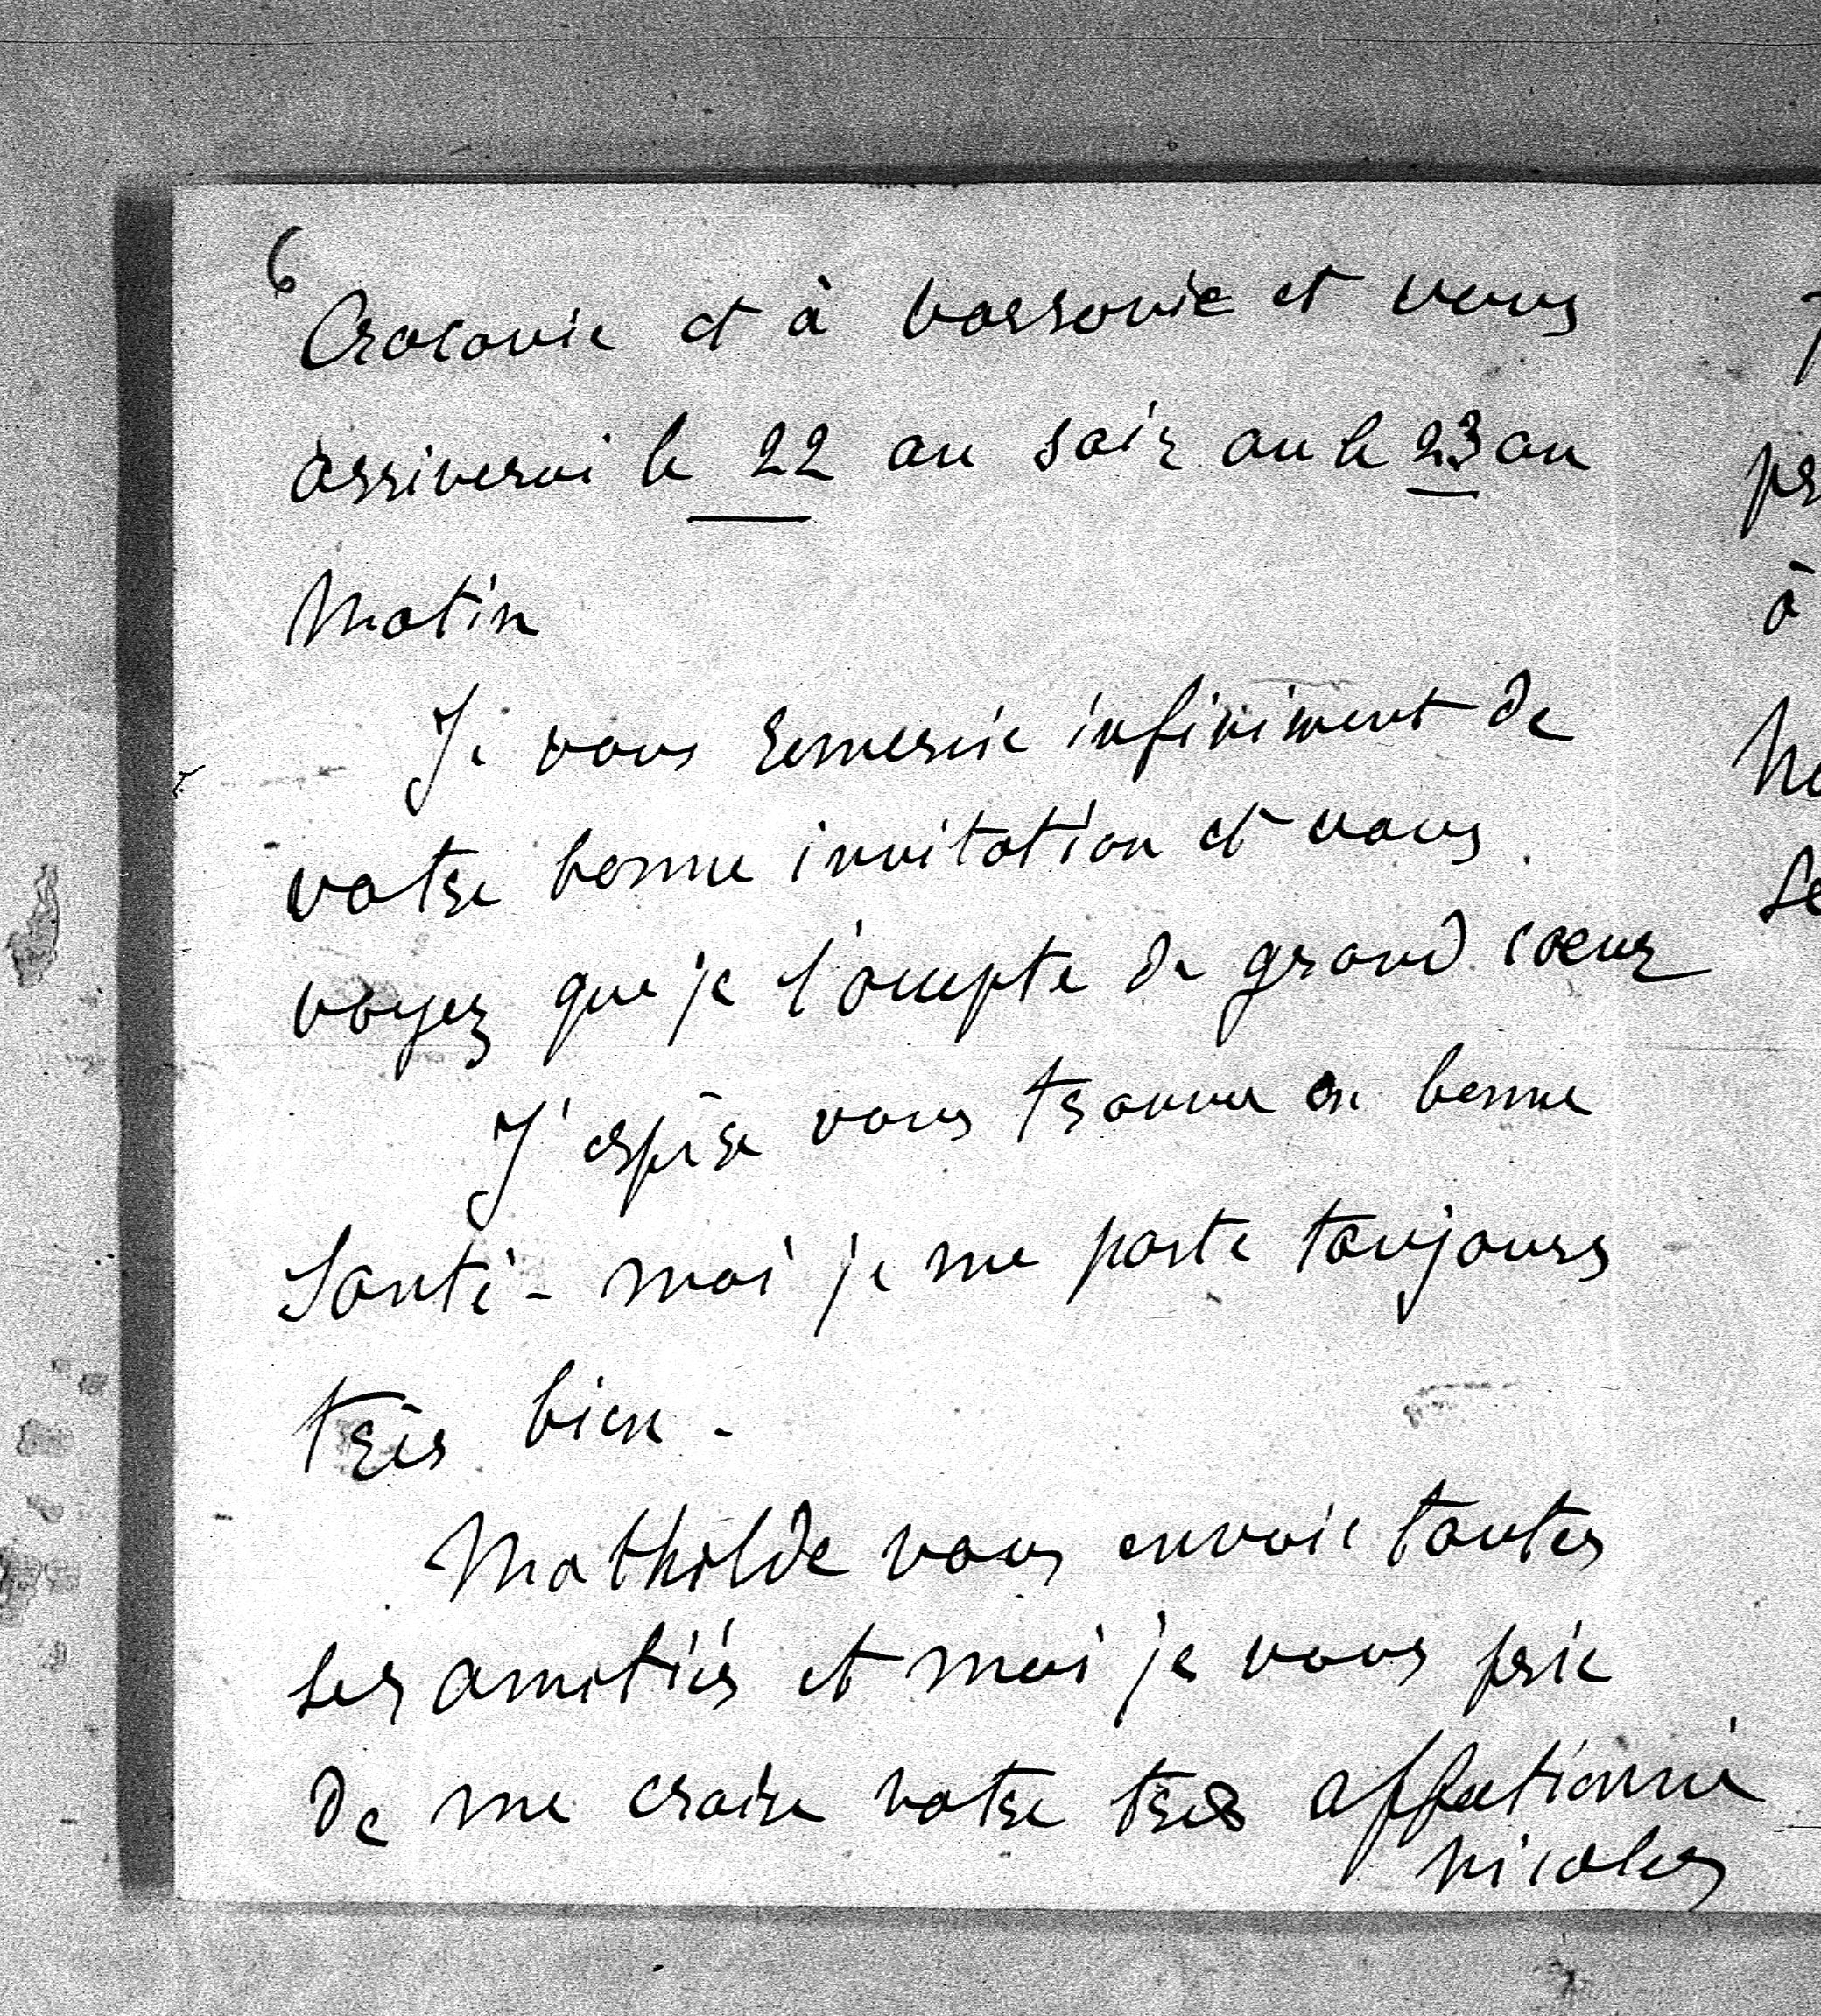 6
Cracovie et à Varsovie et vous
arriverai le 22 au soir ou le 23 au
Matin
Je vous remercie infiniment de
votre bonne invitation et vous
voyez que je l'accepte de grand coeur
J'espère vous trouver en bonne
Santé - moi je me porte toujours
très bien -
Mathilde vous envoie toutes
ses amitiés et moi je vous prie
de me croire votre très affectionné
Nicolas